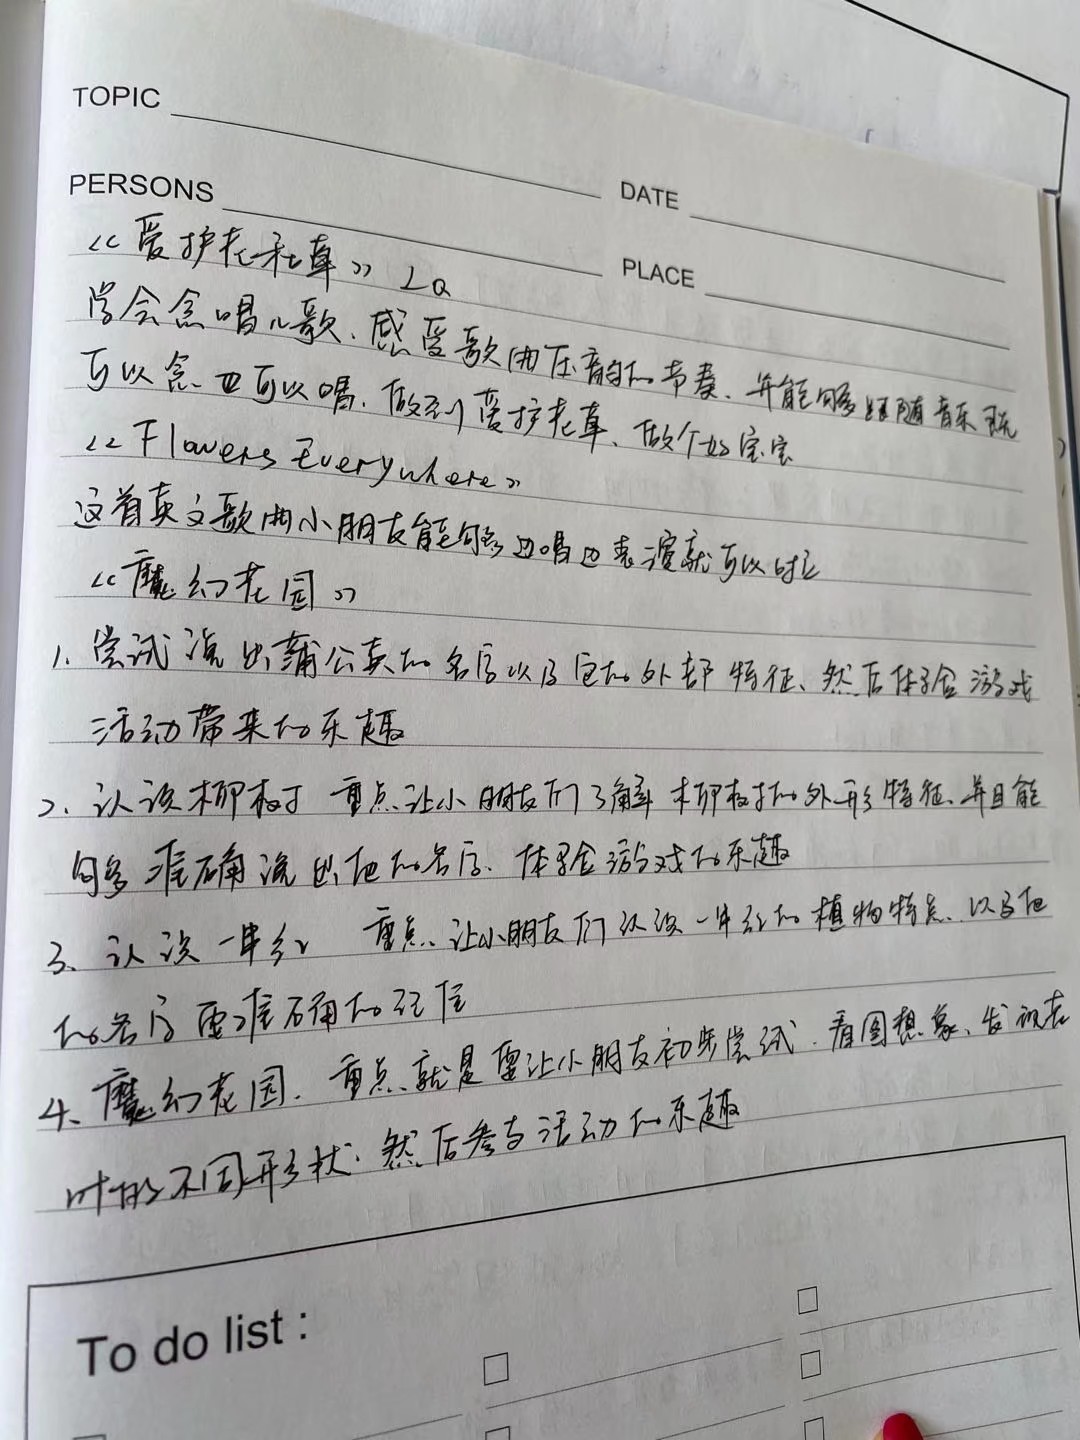 TOPIC
PERSONS
DATE
PLACE
《爱护花和草》 La
学会念唱儿歌、感受歌曲压韵的节奏、并能够跟随音乐
可以念也可以唱、做到爱护花草、做个好宝宝
《Flowers Everywhere》
这首英文歌曲小朋友能够边唱边表演就可以时
《魔幻花园》
1、尝试说出蒲公英的名字以及它的外部特征、然后体会游戏
活动带来的乐趣
2、认识柳树 重点让小朋友们了解柳树的外形特征、并且能
够多准确说出他的名字、体会游戏的乐趣
3、认识一串红 重点、让小朋友们认识一串红的植物特点、以及他
的名字要准确的记住
4、魔幻花园、重点就是要让小朋友初步尝试、看图想象、发现花
叶的不同形状、然后参与活动的乐趣
To do list :